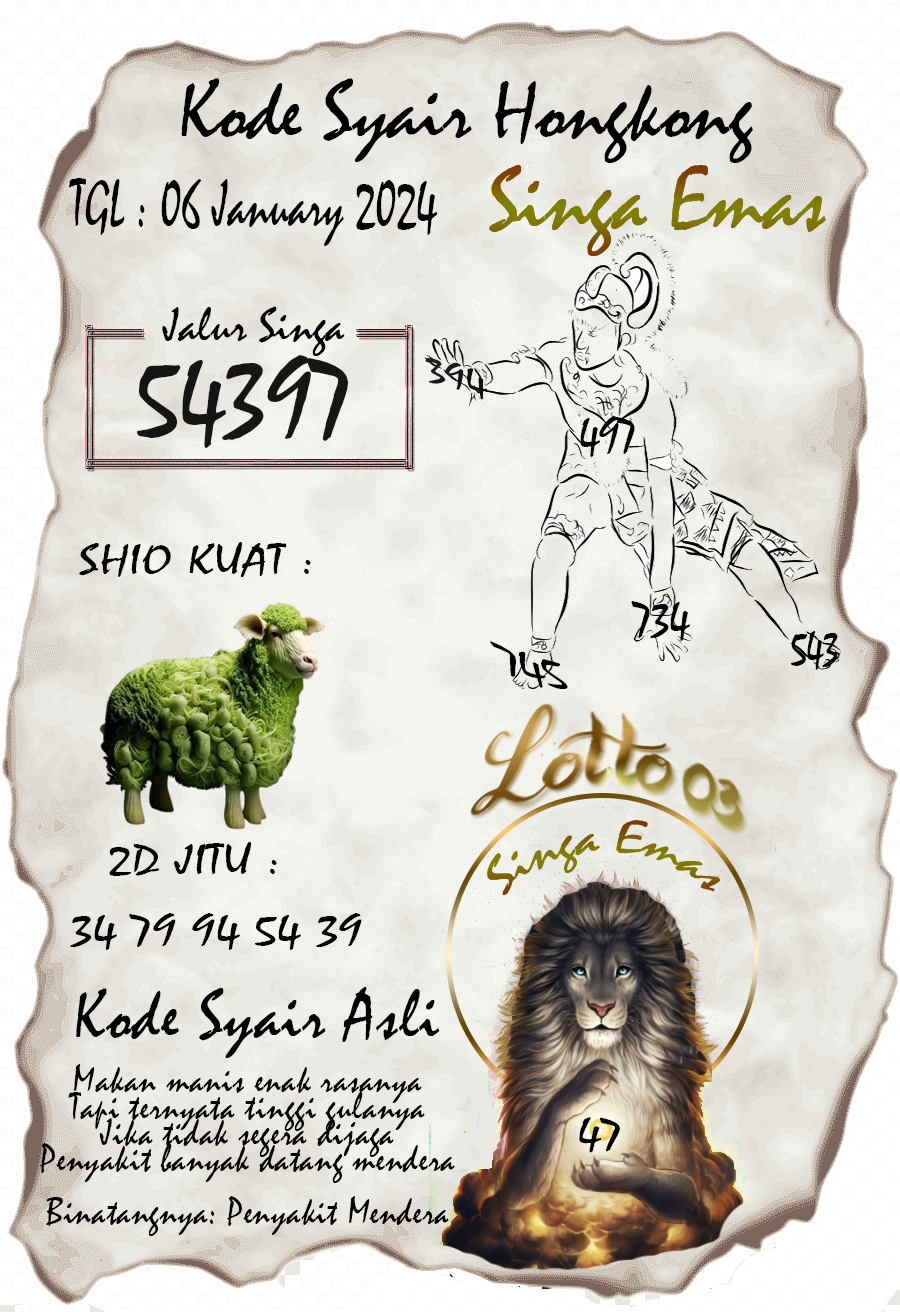 Kode Syair Hongkong
TGL : 06 January 2024
Singa Emas
Jalur Singa
54397
394
497
734
745
543
SHIO KUAT :
2D JITU :
34 79 94 54 39
Lotto 03
Singa Emas
47
Kode Syair Asli
Makan manis enak rasanya
Tapi ternyata tinggi gulanya
Jika tidak segera dijaga
Penyakit banyak datang mendera
Binatangnya: Penyakit Mendera